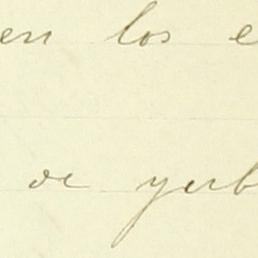 en los e
de yerb